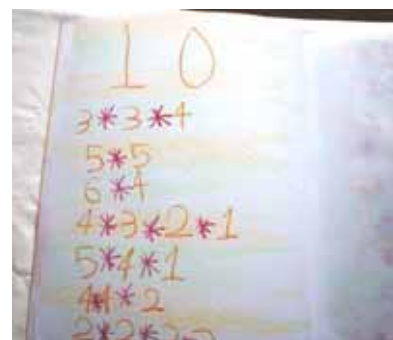 10
3*3*4
5*5
6*4
4*3*2*1
5*4*1
4*4*2
2*2*